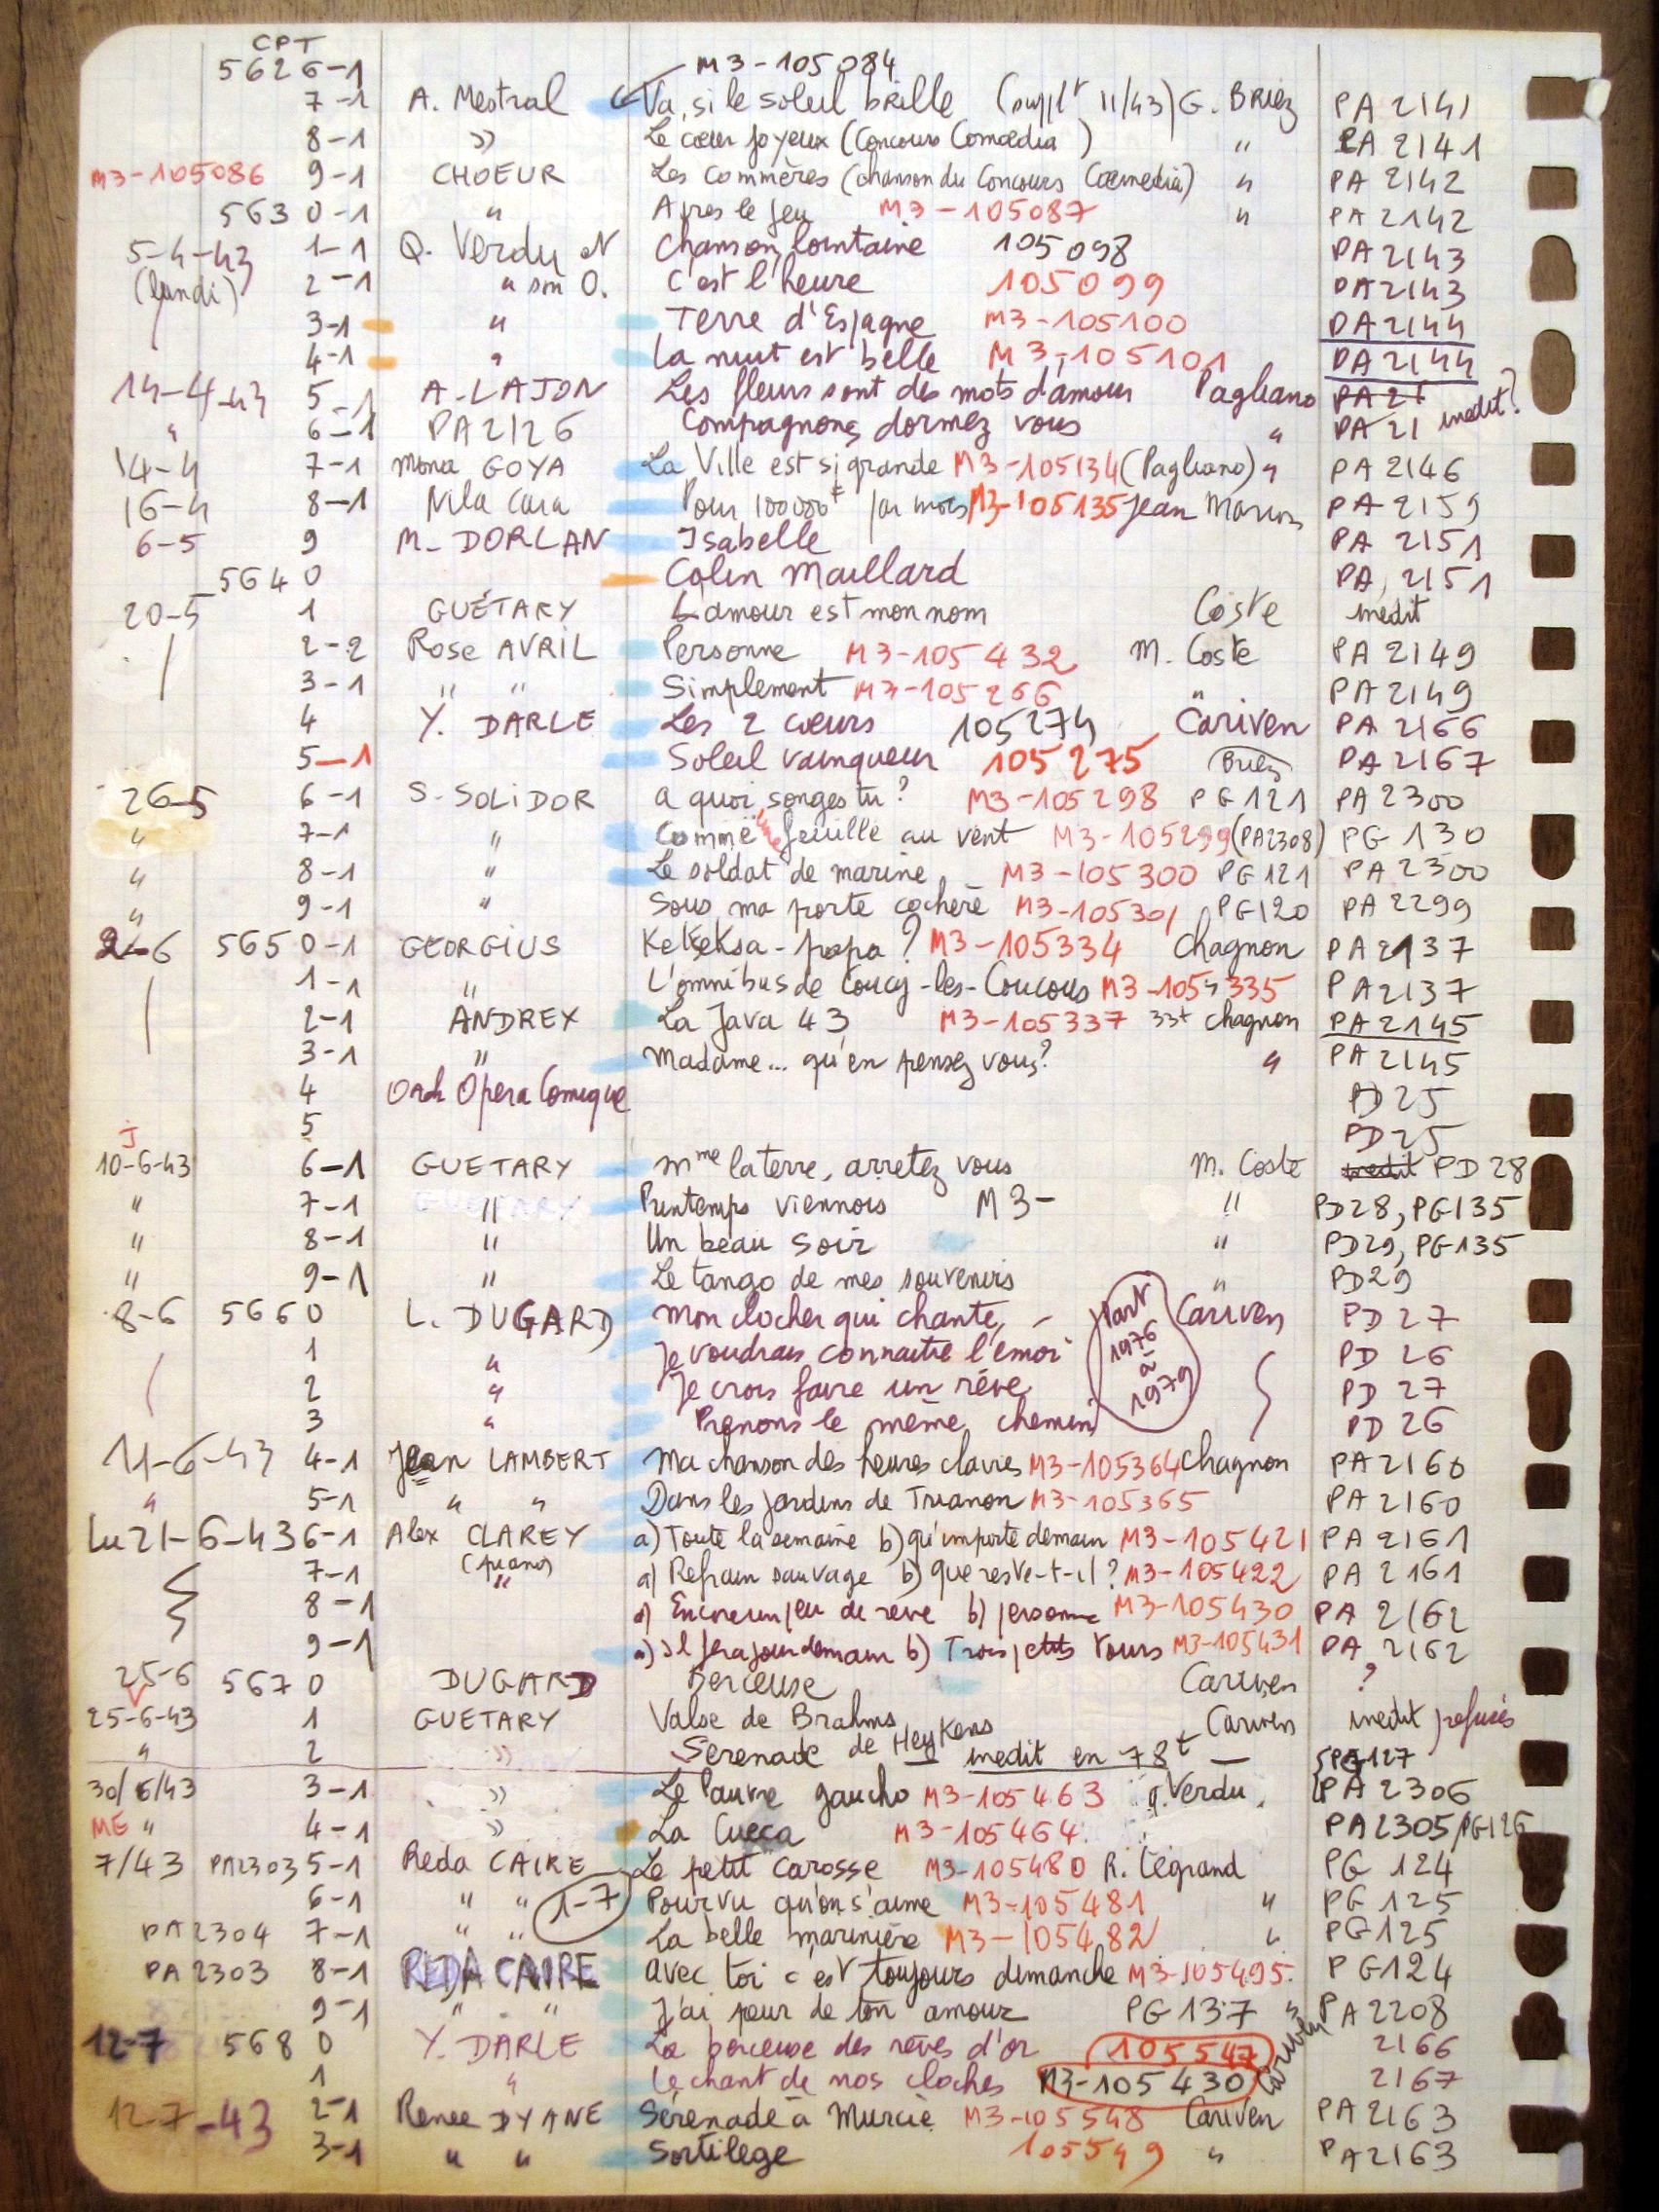 CPT
5626-1 M3-105084
7-1 A. Mestral Va, si le soleil brille (supplt 11/43) G. Briez PA 2141
8-1 » Le cœur joyeux (Concours Comœdia) " PA 2141
M3-105086 9-1 CHOEUR Les Commères (chanson du Concours Coemedia) " PA 2142
5630-1 " Apres le jeu M3-105087 " PA 2142
5-4-43 1-1 Q. Verdu et Chanson lointaine 105098 PA 2143
(lundi) 2-1 " son O. C'est l'heure 105099 PA 2143
3-1 " Terre d'Espagne M3-105100 PA 2144
4-1 " La nuit est belle M3-105101 PA 2144
14-4-43 5-1 A. LAJON Les fleurs sont des mots d'amour Pagliano PA 21 inedit?
" 6-1 PA2126 Compagnons dormez vous " PA 21
14-4 7-1 Mona GOYA La Ville est si grande M3-105134 (Pagliano) " PA 2146
16-4 8-1 Nila Cara Pour 100000F par mois M3-105135 Jean Marion PA 2159
6-5 9 M. DORLAN Isabelle PA 2151
5640 Colin Maillard PA 2151
20-5 1 GUÉTARY L'amour est mon nom Coste inédit
2-2 Rose AVRIL Personne M3-105432 M. Coste PA 2149
3-1 " " Simplement M3-105266 " PA 2149
4 Y. DARLE Les 2 cœurs 105274 Cariven PA 2166
5-1 Soleil vainqueur 105275 Briez PA 2167
26-5 6-1 S. SOLIDOR a quoi songes tu? M3-105298 PG 121 PA 2300
" 7-1 " Comme une feuille au vent M3-105299 (PA2308) PG 130
" 8-1 " Le soldat de marine M3-105300 PG 121 PA 2300
" 9-1 " Sous ma porte cochère M3-105301 PG120 PA 2299
2-6 5650-1 GEORGIUS KeKeKsa-papa? M3-105334 Chagnon PA 2137
1-1 " L'omnibus de Coucy-les-Coucous M3-105335 " PA 2137
2-1 ANDREX La Java 43 M3-105337 33t Chagnon PA 2145
3-1 " Madame... qu'en pensez vous? " PA 2145
4 Orch Opera Comique PD 25
5 PD 25
J
10-6-43 6-1 GUETARY Mme la terre, arretez vous M. Coste inedit PD 28
" 7-1 " Printemps viennois M3- " PD28, PG135
" 8-1 " Un beau soir " PD29, PG135
" 9-1 " Le tango de mes souvenirs " PD29
8-6 5660 L. DUGARD Mon clocher qui chante, - Part 1976 à 1979 Cariven PD 27
1 " Je voudrais connaitre l'émoi PD 26
2 " Je crois faire un rêve PD 27
3 " Prenons le même chemin PD 26
11-6-43 4-1 Jean LAMBERT Ma chanson des heures claires M3-105364 Chagnon PA 2160
" 5-1 " " Dans les jardins de Trianon M3-105365 PA 2160
Lu 21-6-43 6-1 Alex CLAREY a) Toute la semaine b) qu'importe demain M3-105421 PA 2161
7-1 (piano) " a) Refrain sauvage b) que reste-t-il? M3-105422 PA 2161
8-1 a) Encore un peu de rêve b) personne M3-105430 PA 2162
9-1 a) Il fera jour demain b) Trois petits tours M3-105431 PA 2162
25-6 5670 DUGARD Berceuse Cariven ?
25-6-43 1 GUETARY Valse de Brahms Cariven inedit refusés
" 2 » Serenade de Heykens - inedit en 78t - PG127
30/6/43 3-1 » Le Pauvre gaucho M3-105463 Q. Verdu PA 2306
ME " 4-1 » La Cueca M3-105464 PA2305/PG126
7/43 PA2303 5-1 Reda CAIRE Le petit carosse M3-105480 R. Legrand PG 124
6-1 " " 1-7 Pourvu qu'on s'aime M3-105481 " PG 125
PA2304 7-1 " " La belle marinière M3-105482 " PG125
PA 2303 8-1 REDA CAIRE avec toi c'est toujours dimanche M3-105495 PG124
9-1 " " J'ai peur de ton amour PG 137 " PA2208
12-7 5680 Y. DARLE La berceuse des rêves d'or 105547 Cariven 2166
1 " Le chant de nos cloches M3-105430 2167
12-7-43 2-1 Renee DYANE Sérénade à Murcie M3-105548 Cariven PA 2163
3-1 " " Sortilege 105549 " PA2163